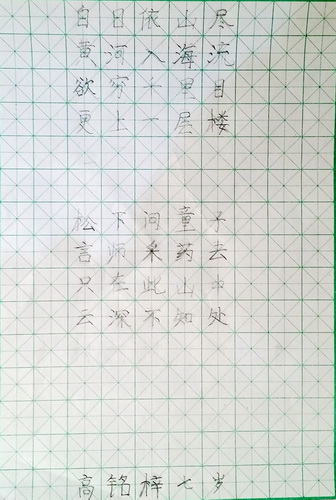 白日依山尽
黄河入海流
欲穷千里目
更上一层楼
松下问童子
言师采药去
只在此山中
云深不知处
高铭梓七岁